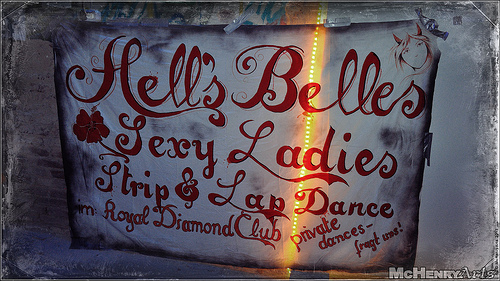 Hell's Belles
Sexy Ladies
Strip & Lap Dance
im Royal Diamond Club private
dances-
fragt uns!
McHenryArts